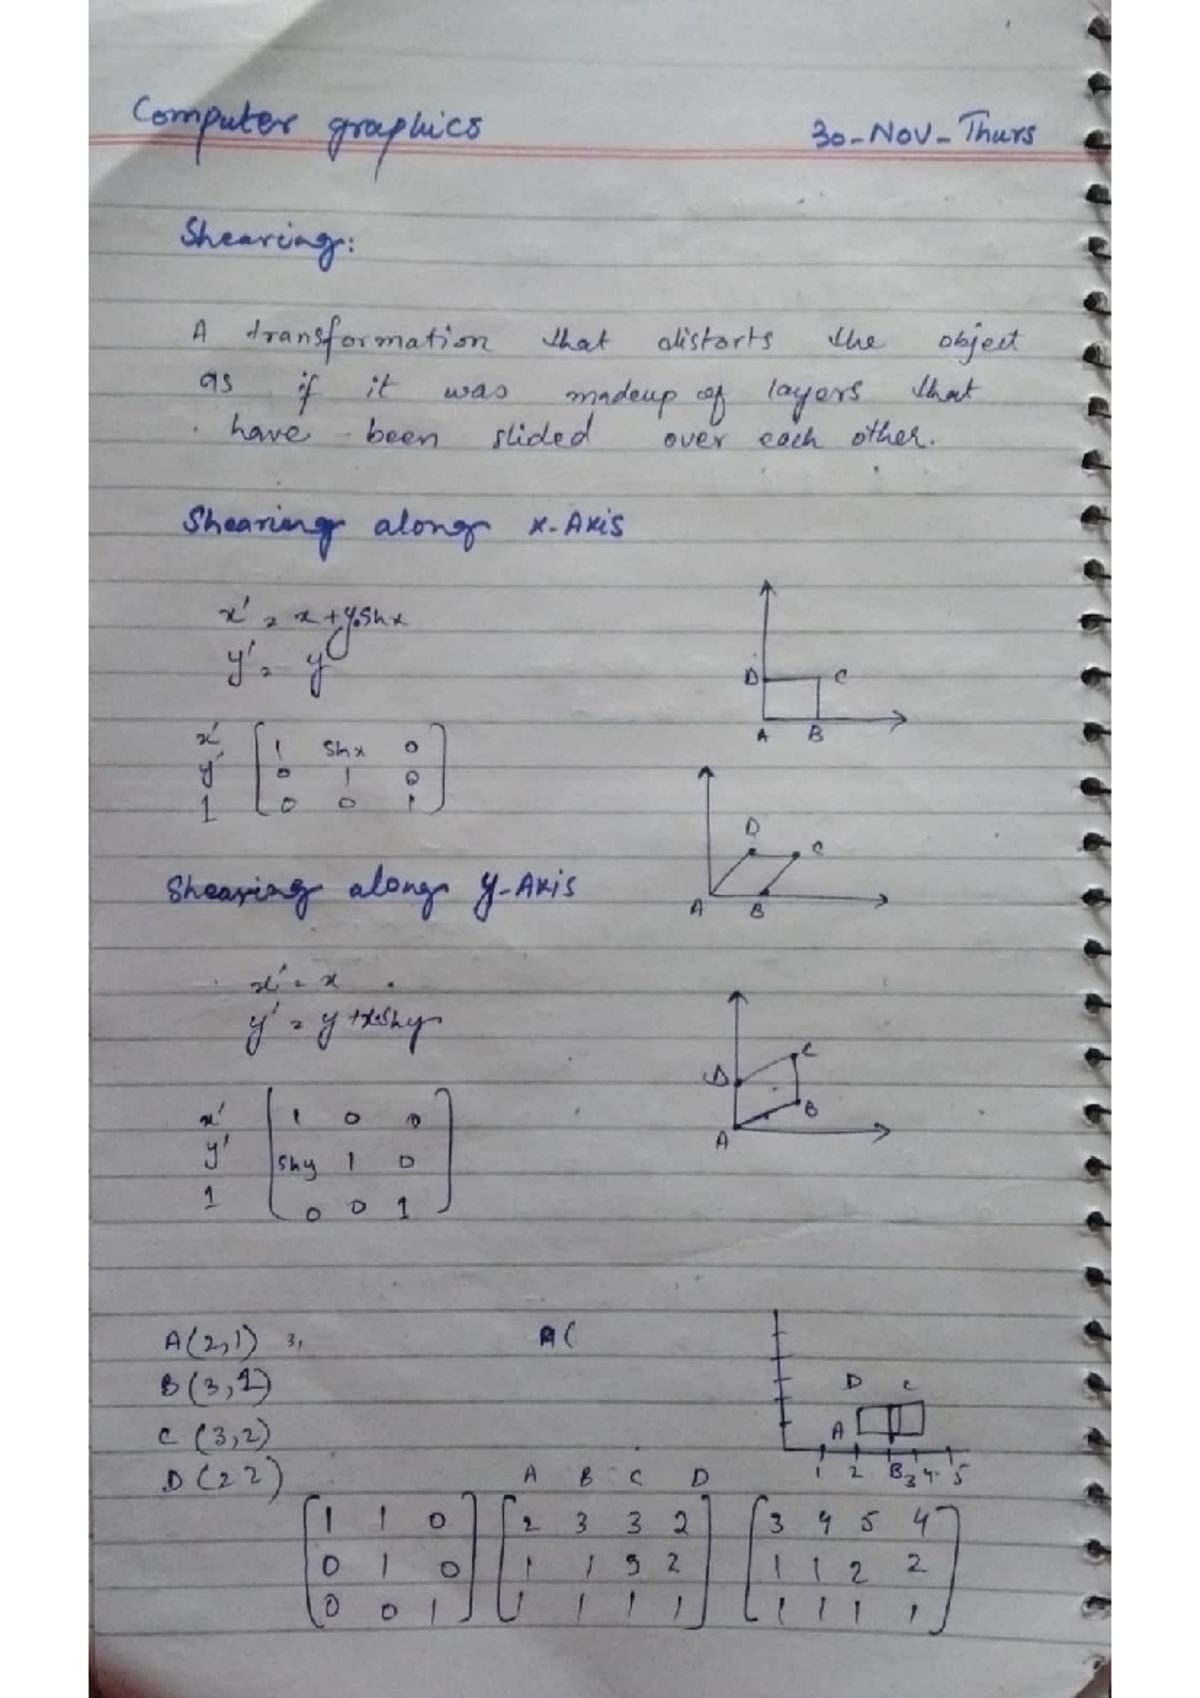 Computer graphics 30-Nov-Thurs
Shearing:
A transformation that distorts the object
as if it was madeup of layers that
have been slided over each other.
Shearing along x-Axis
x' = x + y.Shx
y' = y
D C
A B
x' [ 1 Shx 0 ]
y' [ 0 1 0 ]
1 [ 0 0 1 ]
D C
A B
Shearing along y-Axis
x' = x
y' = y + x.Shy
D C
A B
x' [ 1 0 0 ]
y' [ Shy 1 0 ]
1 [ 0 0 1 ]
A(2,1) 3, A(
B(3,1)
C (3,2)
D (2 2)
D C
A
1 2 B3 4 5
A B C D
[ 1 1 0 ] [ 2 3 3 2 ] [ 3 4 5 4 ]
[ 0 1 0 ] [ 1 1 2 ] [ 1 1 2 2 ]
[ 0 0 1 ] [ 1 1 1 1 ] [ 1 1 1 1 ]